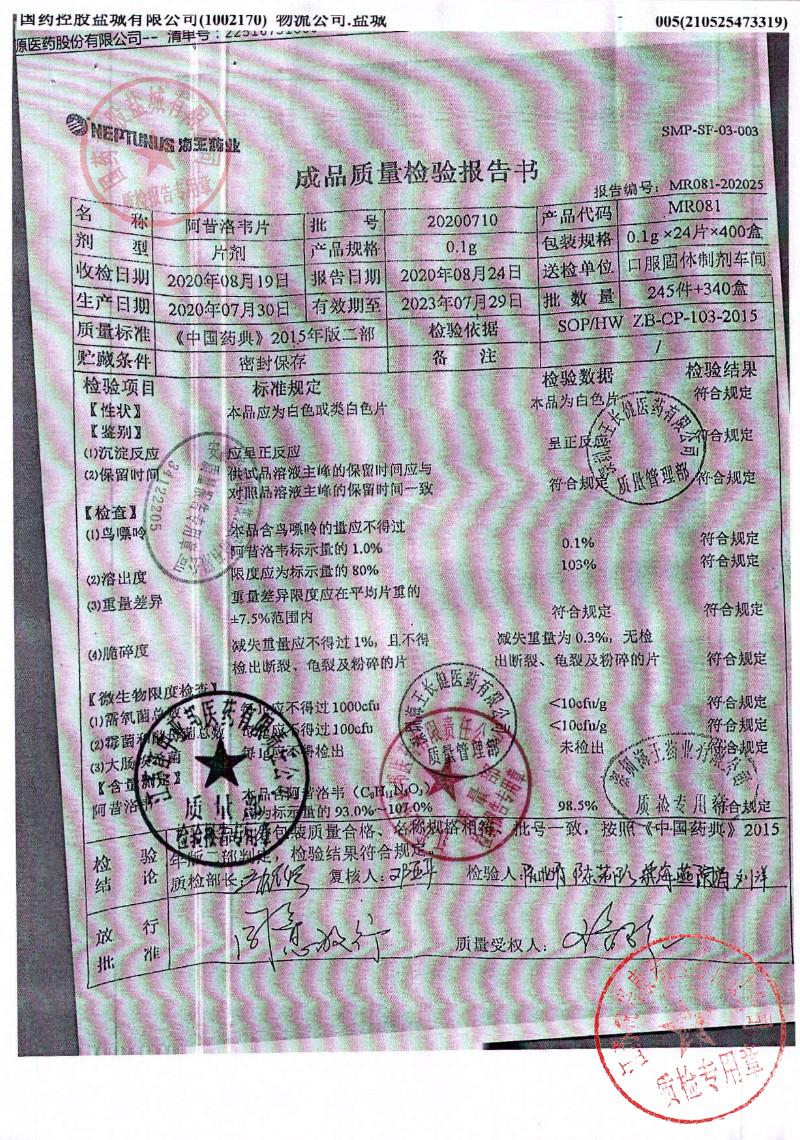 国药控股盐城有限公司(1002170) 物流公司.盐城 005(210525473319)
源医药股份有限公司-- 清单号：
NEPTUNUS 海王药业
SMP-SF-03-003
成品质量检验报告书
报告编号：MR081-202025
名 称 阿昔洛韦片 批 号 20200710 产品代码 MR081
剂 型 片剂 产品规格 0.1g 包装规格 0.1g×24片×400盒
收检日期 2020年08月19日 报告日期 2020年08月24日 送检单位 口服固体制剂车间
生产日期 2020年07月30日 有效期至 2023年07月29日 批 数 量 245件+340盒
质量标准 《中国药典》2015年版二部 检验依据 SOP/HW ZB-CP-103-2015
贮藏条件 密封保存 备 注 /
检验项目 标准规定 检验数据 检验结果
【性状】 本品应为白色或类白色片 本品为白色片 符合规定
【鉴别】
(1)沉淀反应 应呈正反应 呈正反应 符合规定
(2)保留时间 供试品溶液主峰的保留时间应与
对照品溶液主峰的保留时间一致 符合规定 符合规定
【检查】
(1)鸟嘌呤 本品含鸟嘌呤的量应不得过
阿昔洛韦标示量的 1.0% 0.1% 符合规定
(2)溶出度 限度应为标示量的 80% 103% 符合规定
(3)重量差异 重量差异限度应在平均片重的
±7.5%范围内 符合规定 符合规定
(4)脆碎度 减失重量应不得过 1%，且不得 减失重量为 0.3%，无检
检出断裂、龟裂及粉碎的片 出断裂、龟裂及粉碎的片 符合规定
【微生物限度检查】
(1)需氧菌总数 每1g应不得过 1000cfu <10cfu/g 符合规定
(2)霉菌和酵母菌总数 每1g应不得过 100cfu <10cfu/g 符合规定
(3)大肠埃希菌 每1g应不得检出 未检出 符合规定
【含量测定】 本品含阿昔洛韦（C₈H₁₁N₅O₃）
阿昔洛韦 应为标示量的 93.0%～107.0% 98.5% 符合规定
检 验 包装质量合格、名称规格相符、批号一致，按照《中国药典》2015
结 论 年版二部判定，检验结果符合规定
质检部长： 复核人： 检验人：
放 行 同意放行
批 准 质量受权人：
质检报告专用章
深圳海王长健医药有限公司
质量管理部
34122205
深圳海王长健医药有限公司
质量管理部
质量部
检验报告专用章
深圳海王药业有限公司
质检专用章
质检专用章